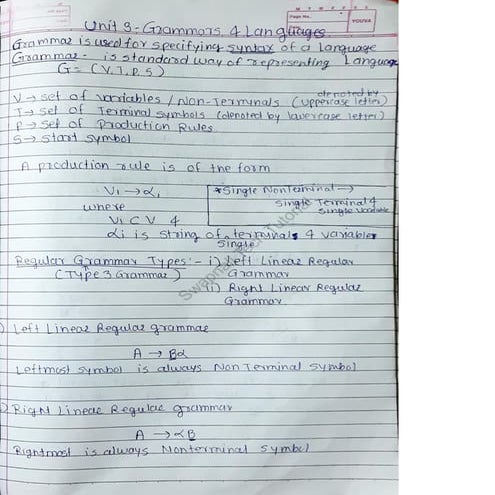 Unit 3:- Grammars & Languages
Grammar is used for specifying syntax of a Language
Grammar - is standard way of representing Language
G = (V, T, P, S)
denoted by
V → set of variables / Non-Terminals (uppercase letter)
T → Set of Terminal symbols (denoted by lowercase letter)
P → Set of Production Rules
S → start symbol
A production rule is of the form
V1 → αi
*Single Nonterminal →
single Terminal &
single variable
where
V1 ⊂ V &
αi is string of terminals & variables
Single
Regular Grammar Types:- i) Left Linear Regular
(Type 3 Grammar) Grammar
ii) Right Linear Regular
Grammar
Left Linear Regular grammar
A → Bα
Leftmost symbol is always Non Terminal symbol
Right Linear Regular grammar
A → αB
Rightmost is always Nonterminal symbol
Page No.
YOUVA